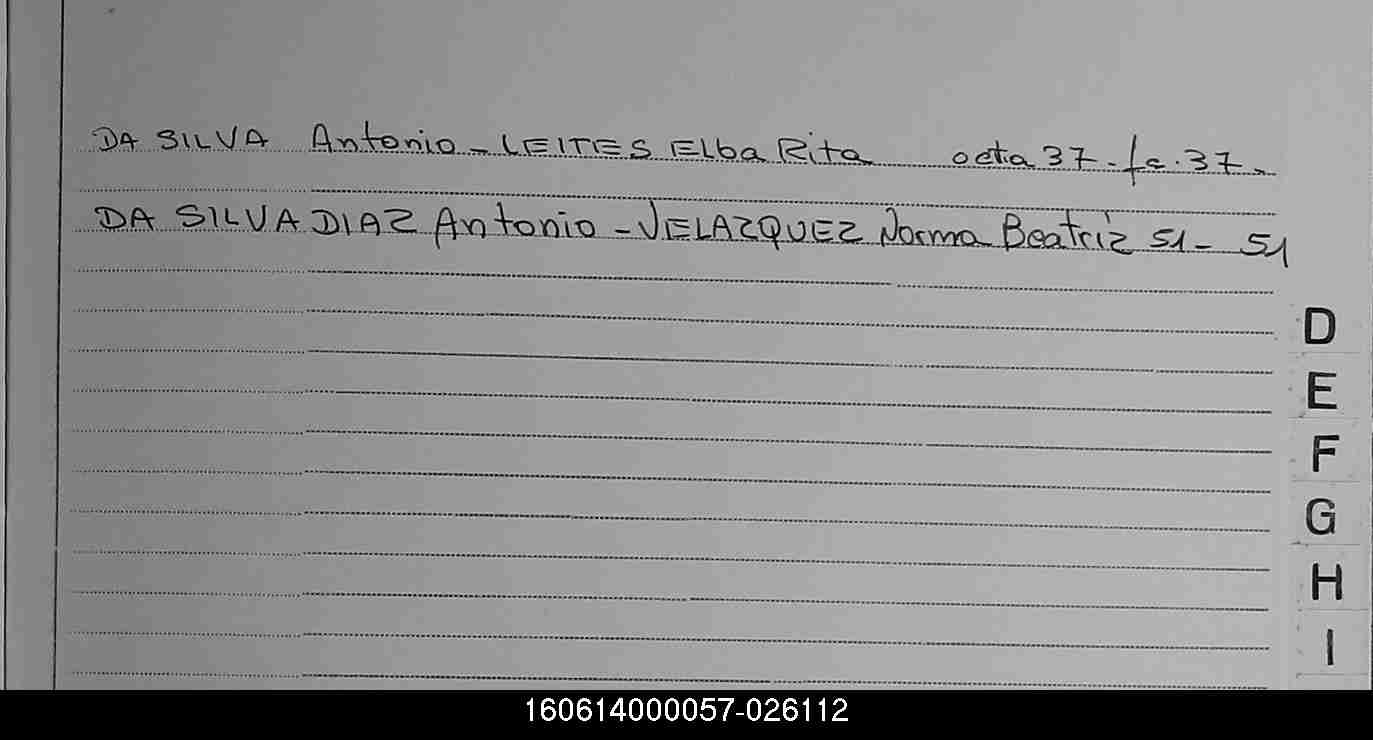 DA SILVA Antonio - LEITES ELba Rita acta 37 - fo. 37 -
DA SILVA DIAZ Antonio - VELAZQUEZ Norma Beatriz 51 - 51
D
E
F
G
H
I
160614000057-026112